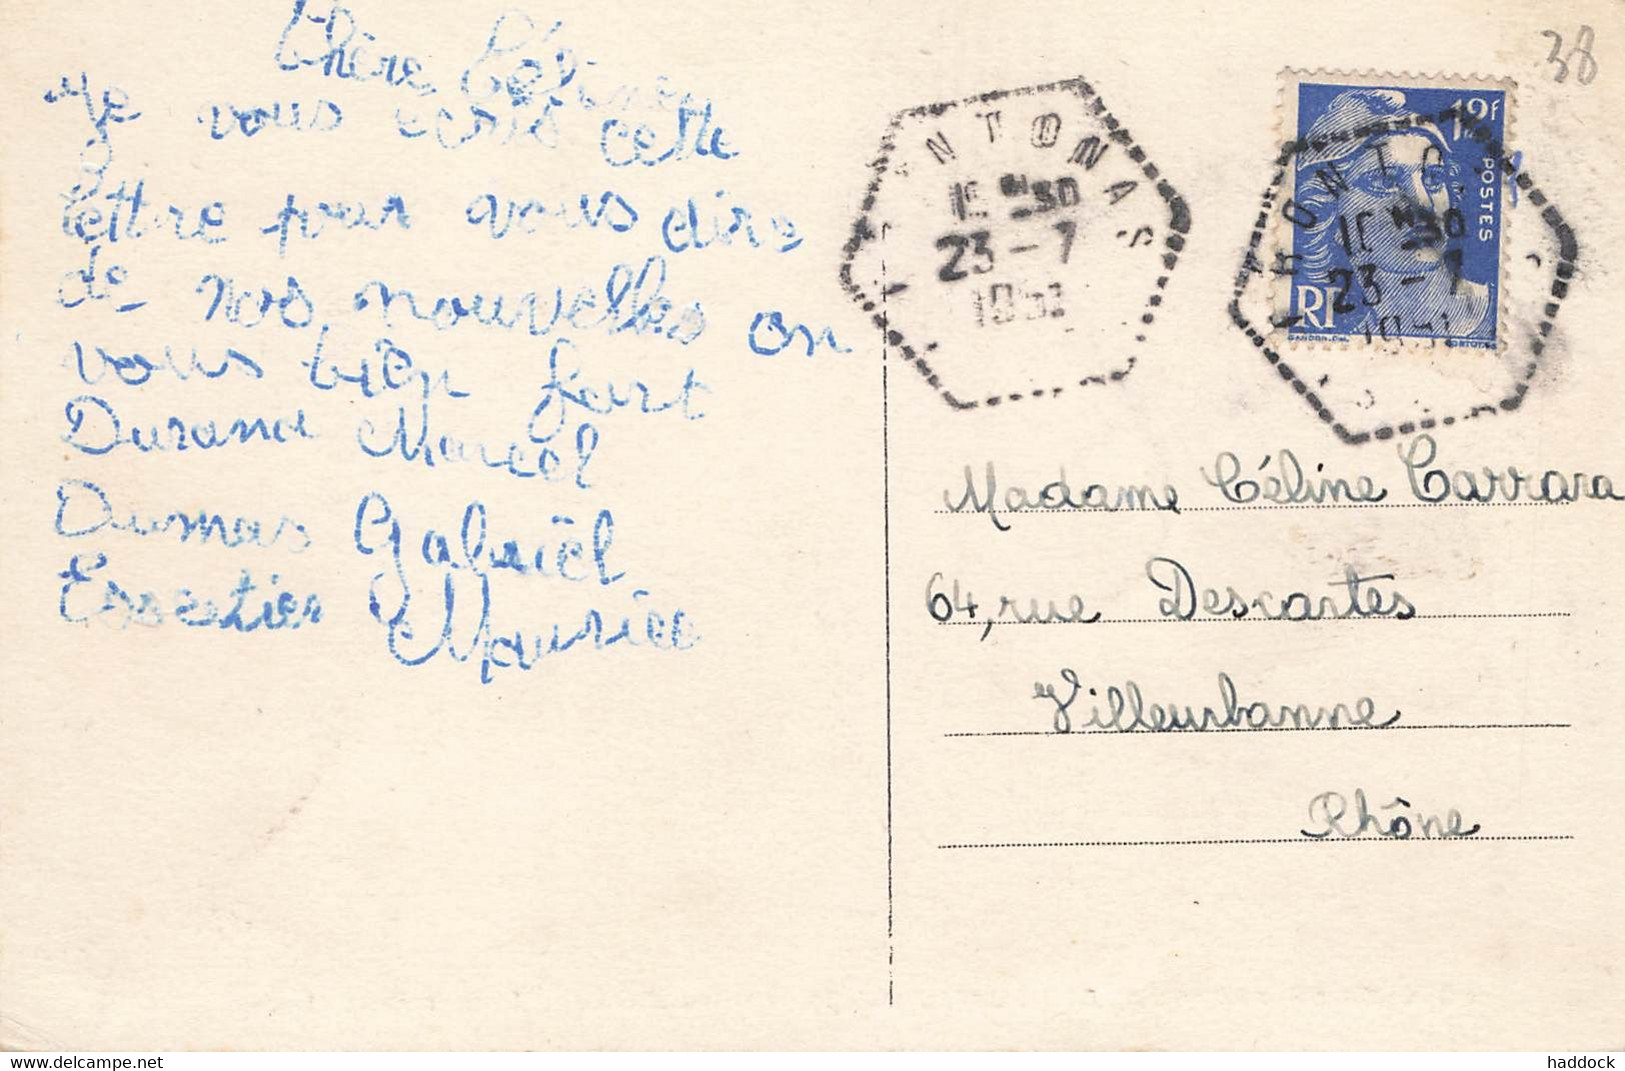 Chère Céline
Je vous ecris cette
lettre pour vous dire
de nos nouvelles on
vous bien fort
Durand Marcel
Dumas Gabriël
Escoetier Maurice
38
12f
POSTES
RF
10 H 30
23 - 7
10 H 30
23 - 7
Madame Céline Carrara
64, rue Descartes
Villeurbanne
Rhône
www.delcampe.net
haddock